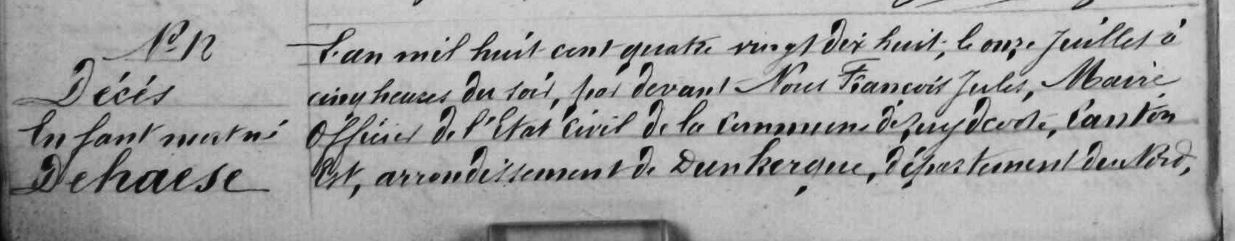 No 12
Décès
Enfant mort né
Dehaese
L'an mil huit cent quatre vingt dix huit, le onze Juillet à
cinq heures du soir, par devant Nous François Jules, Maire
Officier de l'Etat Civil de la Commune de Zuydcoote, Canton
Est, arrondissement de Dunkerque, département du Nord,